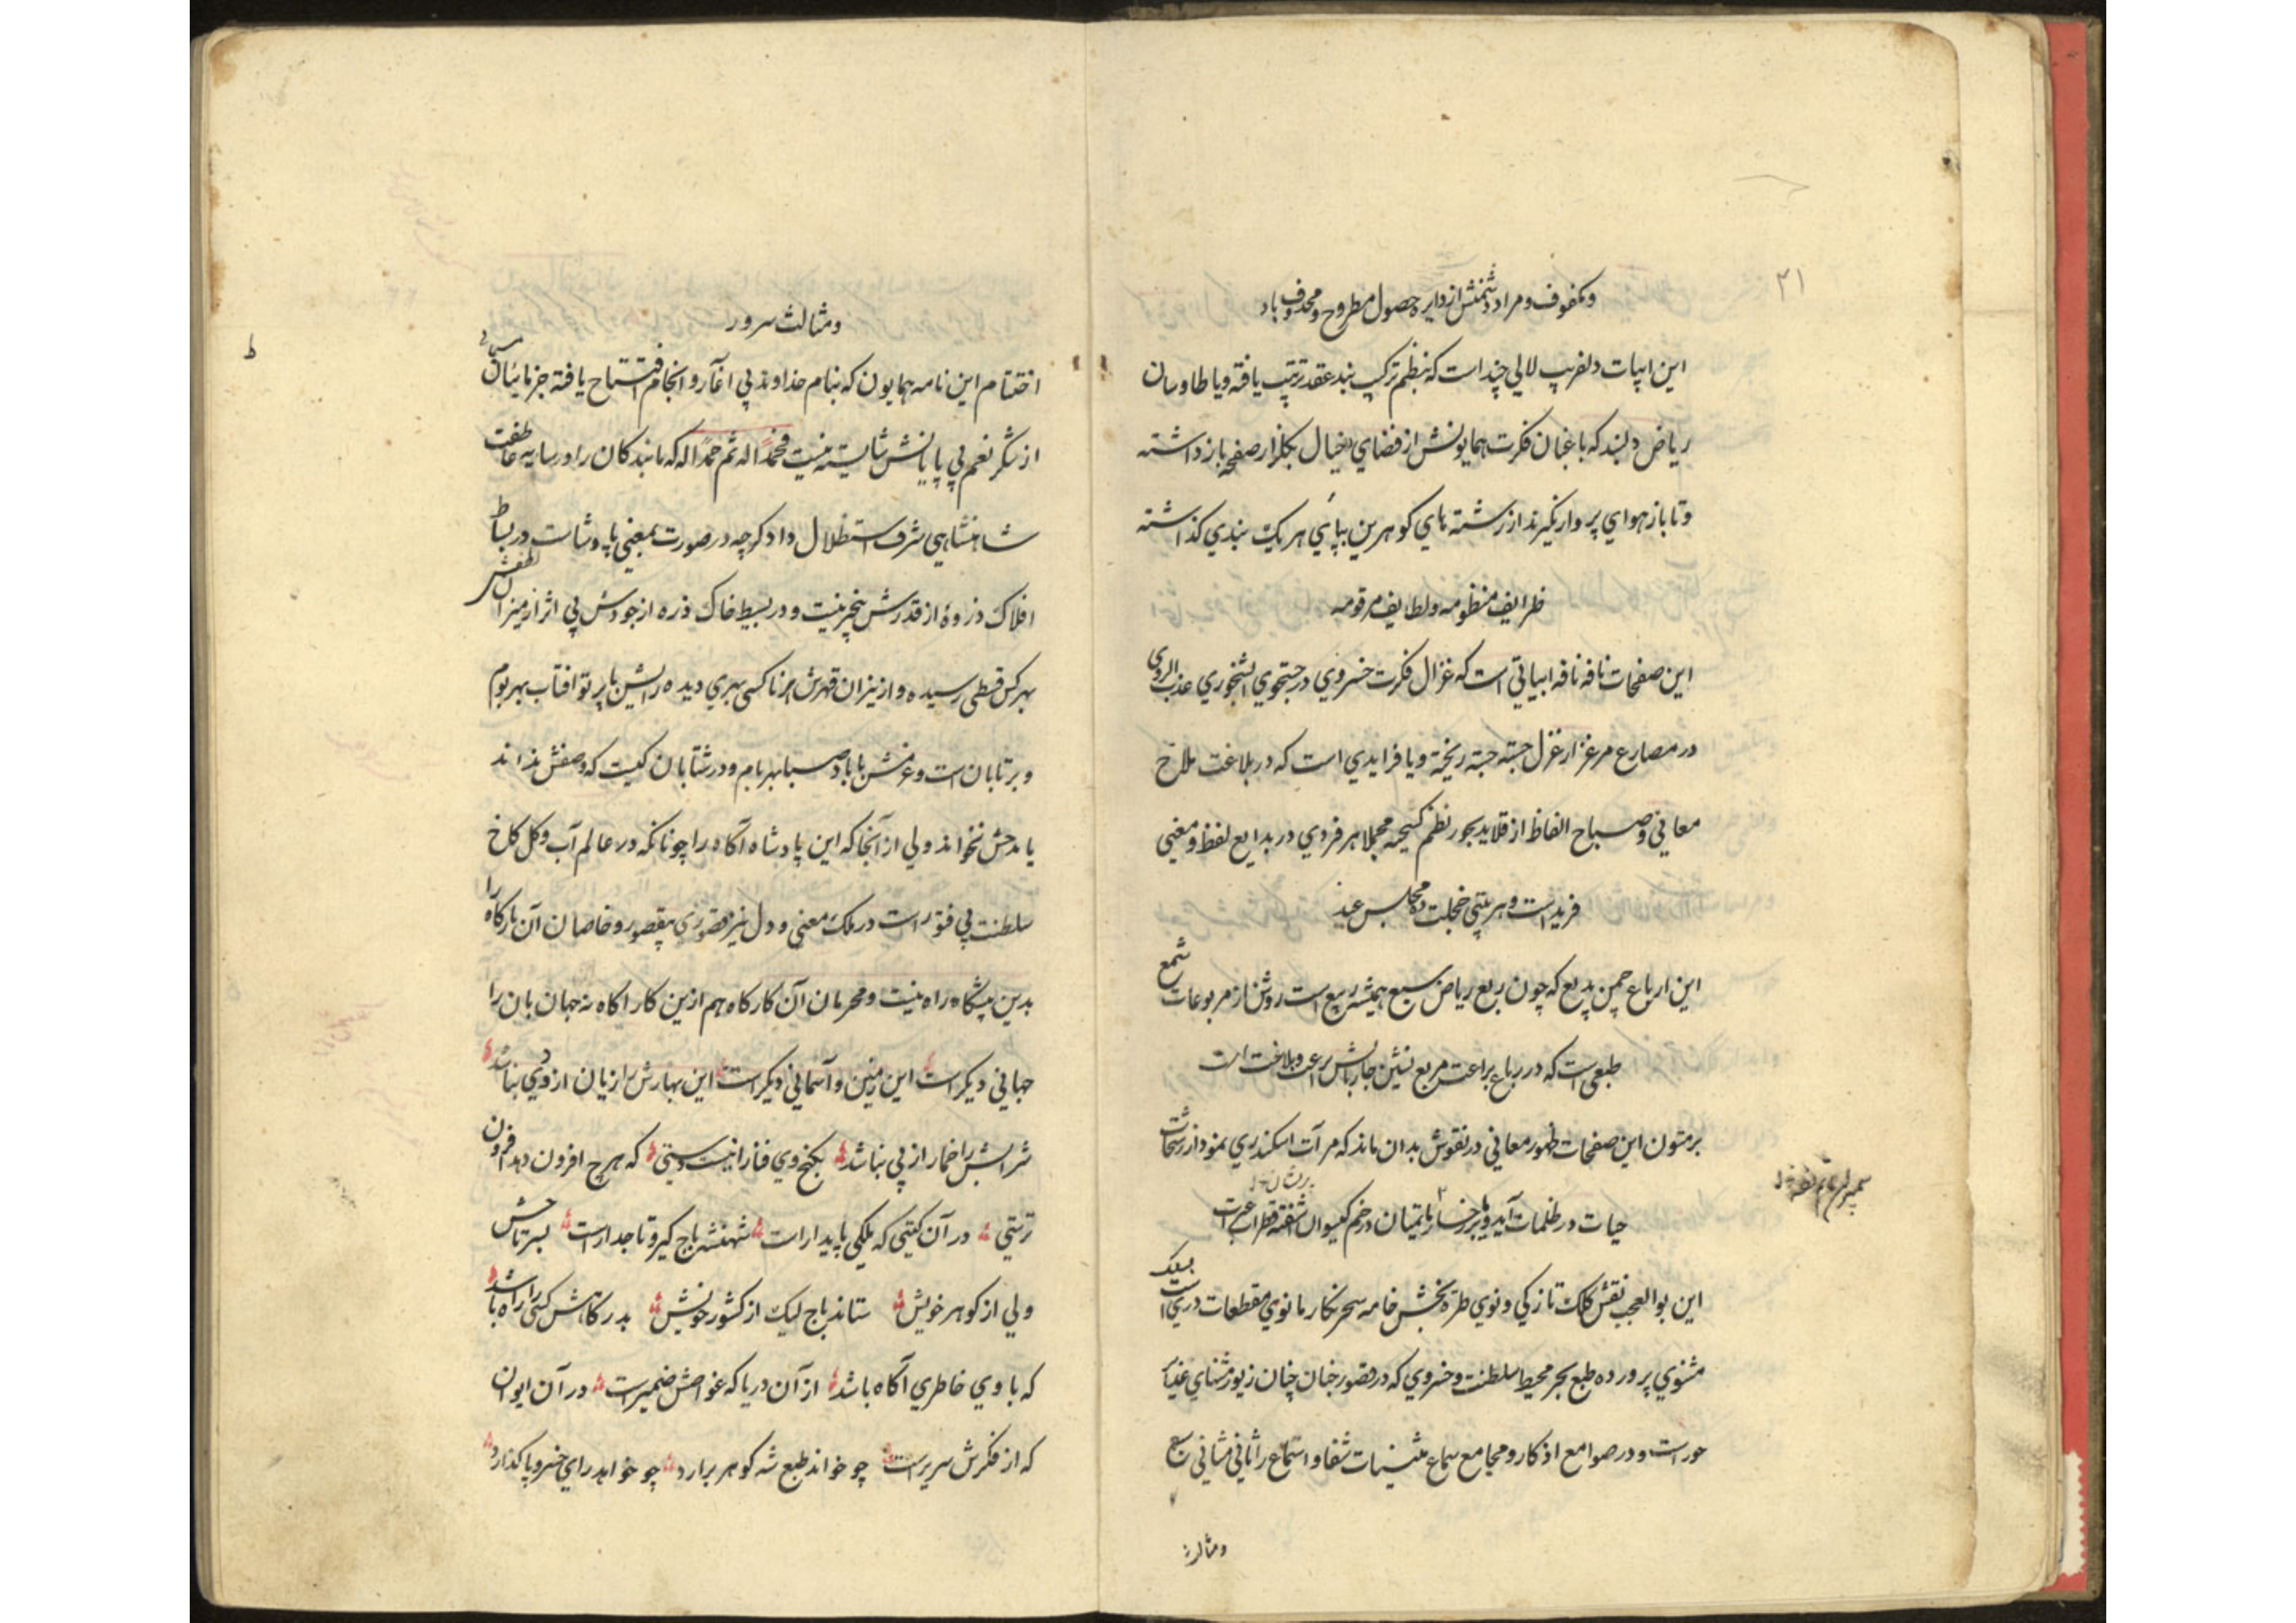 ۲۱
ومکفوف ومراد دشمنش از دایره حصول مطروح ومحذوف باد
این ابیات دلفریب لالی چند است که بنظم ترکیب بند عقد ترتیب یافته ویا طاوسان
ریاض دلبند که باغبان فکرت همایونش از فضای خیال بکلزار صفحه باز داشته
وتا باز هوای پرواز نکیرند از رشته های کوهرین بپای هر یک بندی کذاشته
ظرایف منظومه ولطایف مرقومه
این صفحات نافه نافه ابیاتی است که غزال فکرت خسروی در جستجوی عذب الروی
در مصارع مرغزار غزل جسته جسته ریخته ویا فرایدی است که در بلاغت ملاح
معانی وصباح الفاظ از قلاید بحور نظم کسیخته مجملا هر فردی در بدایع لفظ ومعنی
فرید است وهر بیتی خجلت ده مجلس عید
این ارباع چمن بدیع که چون ربع ریاض سبع همیشه ربیع است روشن از مربوعات شمع
طبعی است که در رباع براعت مربع نشین چاربالش براعت وبلاغت است
بر متون این صفحات ظهور معانی در نقوش بدان ماند که مرآت اسکندری نمودار رشحات
حیات در ظلمات آید ویا بر رخسار یتیمان در خم کیسوان اشفته قطرات عبرت
این بوالعجب نقش کلک تازکی ونوی طره بخش خامه سحر نکار مانوی مقطعات دری است
مثنوی پرورده طبع بحر محیط سلطنت وخسروی که در قصور جنان چنان زیور ثنای
حور است ودر صوامع اذکار ومجامع سماع شفا واستماع را ثانی مثانی سبع
ومثالث
ومثالث سرور
اختتام این نامه همایون که بنام خداوند بی اغاز وانجام افتتاح یافته جز بائتلاق
از شکر نعم بی پایانش شایسته نیست فحمدا له ثم حمدا له که ما بندکان را در سایه عاطفت
شاهنشاهی شرف استظلال داد کرچه در صورت ومعنی پادشاست در بساط
افلاک ذروۀ از قدرش بیخبر نیست ودر بسیط خاک ذره از جودش بی اثر از میزان لطفش
بهر کس قسطی رسیده واز نیزان قهرش هر ناکسی بهری دیده رایش با پرتو افتاب بهر بوم
وبر تابان است وعزمش با باد صبا بهر بام ودر شتابان کیست که وصفش نداند
یا مدحش نخواند ولی از آنجا که این پادشاه آکاه را چونانکه در عالم آب وکل کاخ
سلطنت بی فتور است در ملک معنی ودل نیز قصوری بیقصور وخاصان آن بارکاه را
بدین پیشکاه راه نیست ومحرمان آن کارکاه هم ازین کار اکاه نه جهان بان را
جهانی دیکر است این زمین وآسمانی دیکر است این بهارش را زیان از دی نباشد
شرابش را خمار از پی نباشد بکنج وی فنا را نیست دستی که هر چ افزون دهد افزون
ترستی در آن کیتی که ملکی پایدار است شهنشه باج کیر وتاجدار است بسر تاجش
ولی از کوهر خویش ستاند باج لیک از کشور خویش بدرکاهش کسی را راه باشد
که با وی خاطری آکاه باشد از آن دریا که غواصش ضمیرست در آن ایوان
که از فکرش سریرست چو خواند طبع شه کوهر برارد چو خواهد رای خسرو پا کذارد